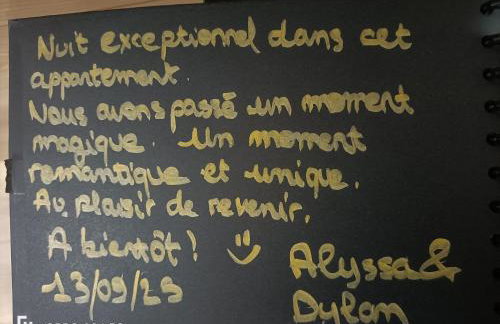 Nuit exceptionnel dans cet
appartement.
Nous avons passé un moment
magique. Un moment
romantique et unique.
Au plaisir de revenir.
A bientôt !
13/09/23
Alyssa &
Dylan